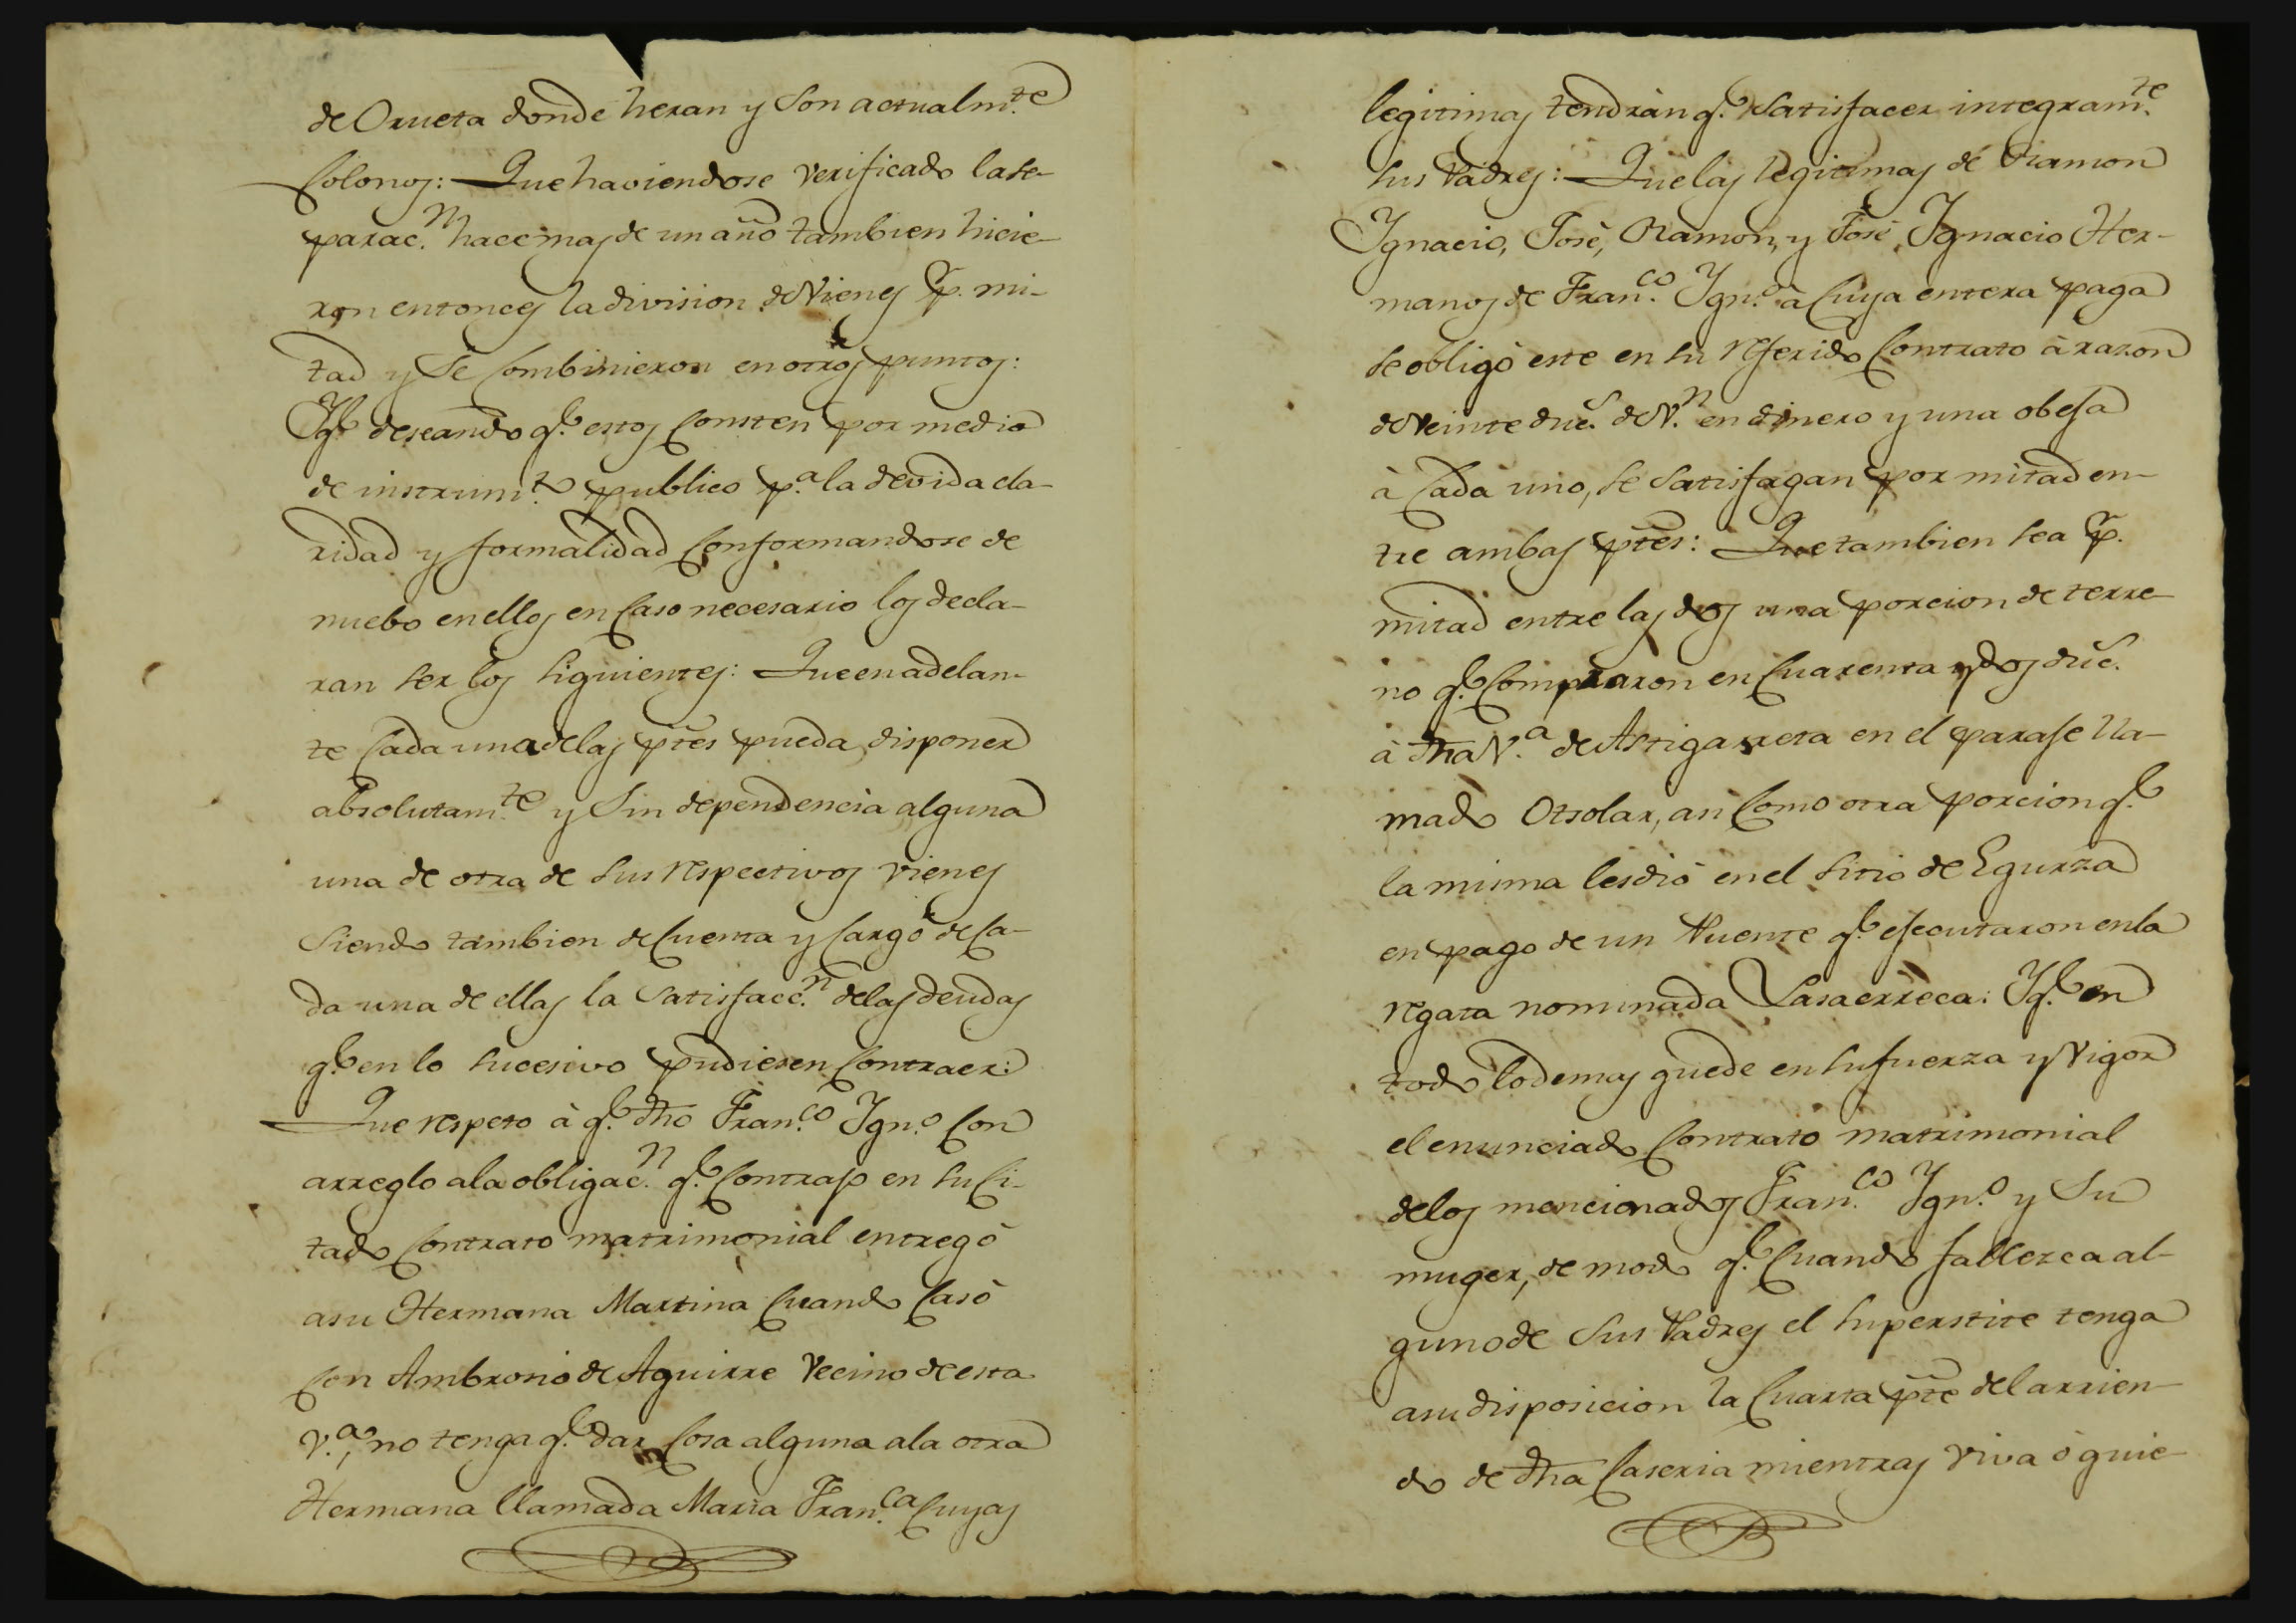 de Orueta donde heran y son actualm.te
Colonos: Que haviendose verificado la se-
parac.n hace mas de un año tambien hicie-
ron entonces la division de Vienes p.r mi-
tad y se combinieron en otros puntos:
Y q.e deseando q.e estos consten por medio
de instrum.to publico p.a la devida cla-
ridad y formalidad conformandose de
nuebo en ellos en caso necesario los decla-
ran ser los siguientes: Que en adelan-
te cada una de las ptes pueda disponer
absolutam.te y sin dependencia alguna
una de otra de sus respectivos vienes
siendo tambien de cuenta y cargo de ca-
da una de ellas la satisfacc.n de las deudas
q.e en lo sucesivo pudiesen contraer:
Que respeto à q.e dho Fran.co Ygn.o con
arreglo ala obligac.n q.e contrajo en su ci-
tado contrato matrimonial entregó
asu Hermana Martina cuando casó
con Ambrosio de Aguirre Vecino de esta
V.a, no tenga q.e dar cosa alguna ala otra
Hermana llamada Maria Fran.ca cuyas
legitimas tendràn q.e satisfacer integram.te
sus Padres: Que las legitimas de Ramon
Ygnacio, José, Ramon, y José Ygnacio Her-
manos de Fran.co Ygn.o à cuya entera paga
se obligó este en su referido contrato à razon
de veinte duc.s de V.n en dinero y una obeja
à cada uno, se satisfagan por mitad en-
tre ambas ptes: Que tambien sea p.r
mitad entre las dos una porcion de terre-
no q.e compraron en cuarenta y dos duc.
à dha V.a de Astigarreta en el paraje lla-
mado Otsolar, asi como otra porcion q.e
la misma les dió en el sitio de Egurza
en pago de un Puente q.e ejecutaron en la
regata nominada Lasaerreca: Y q.e en
todo lo demas quede en su fuerza y vigor
el enunciado contrato matrimonial
de los mencionados Fran.co Ygn.o y su
muger, de modo q.e cuando fallezca al-
guno de sus Padres el superstite tenga
asu disposicion la cuarta pte del arrien-
do de dha caseria mientras viva ó quie-